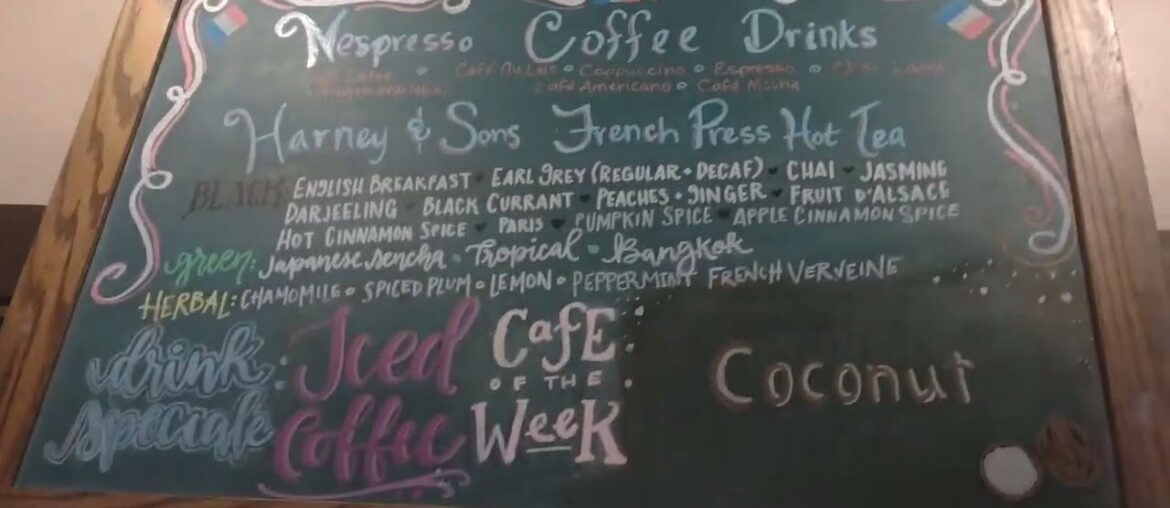 Nespresso Coffee Drinks
Latte • Café Au Lait • Cappuccino • Espresso •
Café Americano • Café Mocha
Harney & Sons French Press Hot Tea
BLACK ENGLISH BREAKFAST • EARL GREY (REGULAR • DECAF) • CHAI • JASMINE
DARJEELING • BLACK CURRANT • PEACHES • GINGER • FRUIT D'ALSACE
HOT CINNAMON SPICE • PARIS • PUMPKIN SPICE • APPLE CINNAMON SPICE
green: Japanese Sencha • Tropical • Bangkok
HERBAL: CHAMOMILE • SPICED PLUM • LEMON • PEPPERMINT FRENCH VERVEINE
drink specials: Iced Coffee
CAFE OF THE WEEK: Coconut